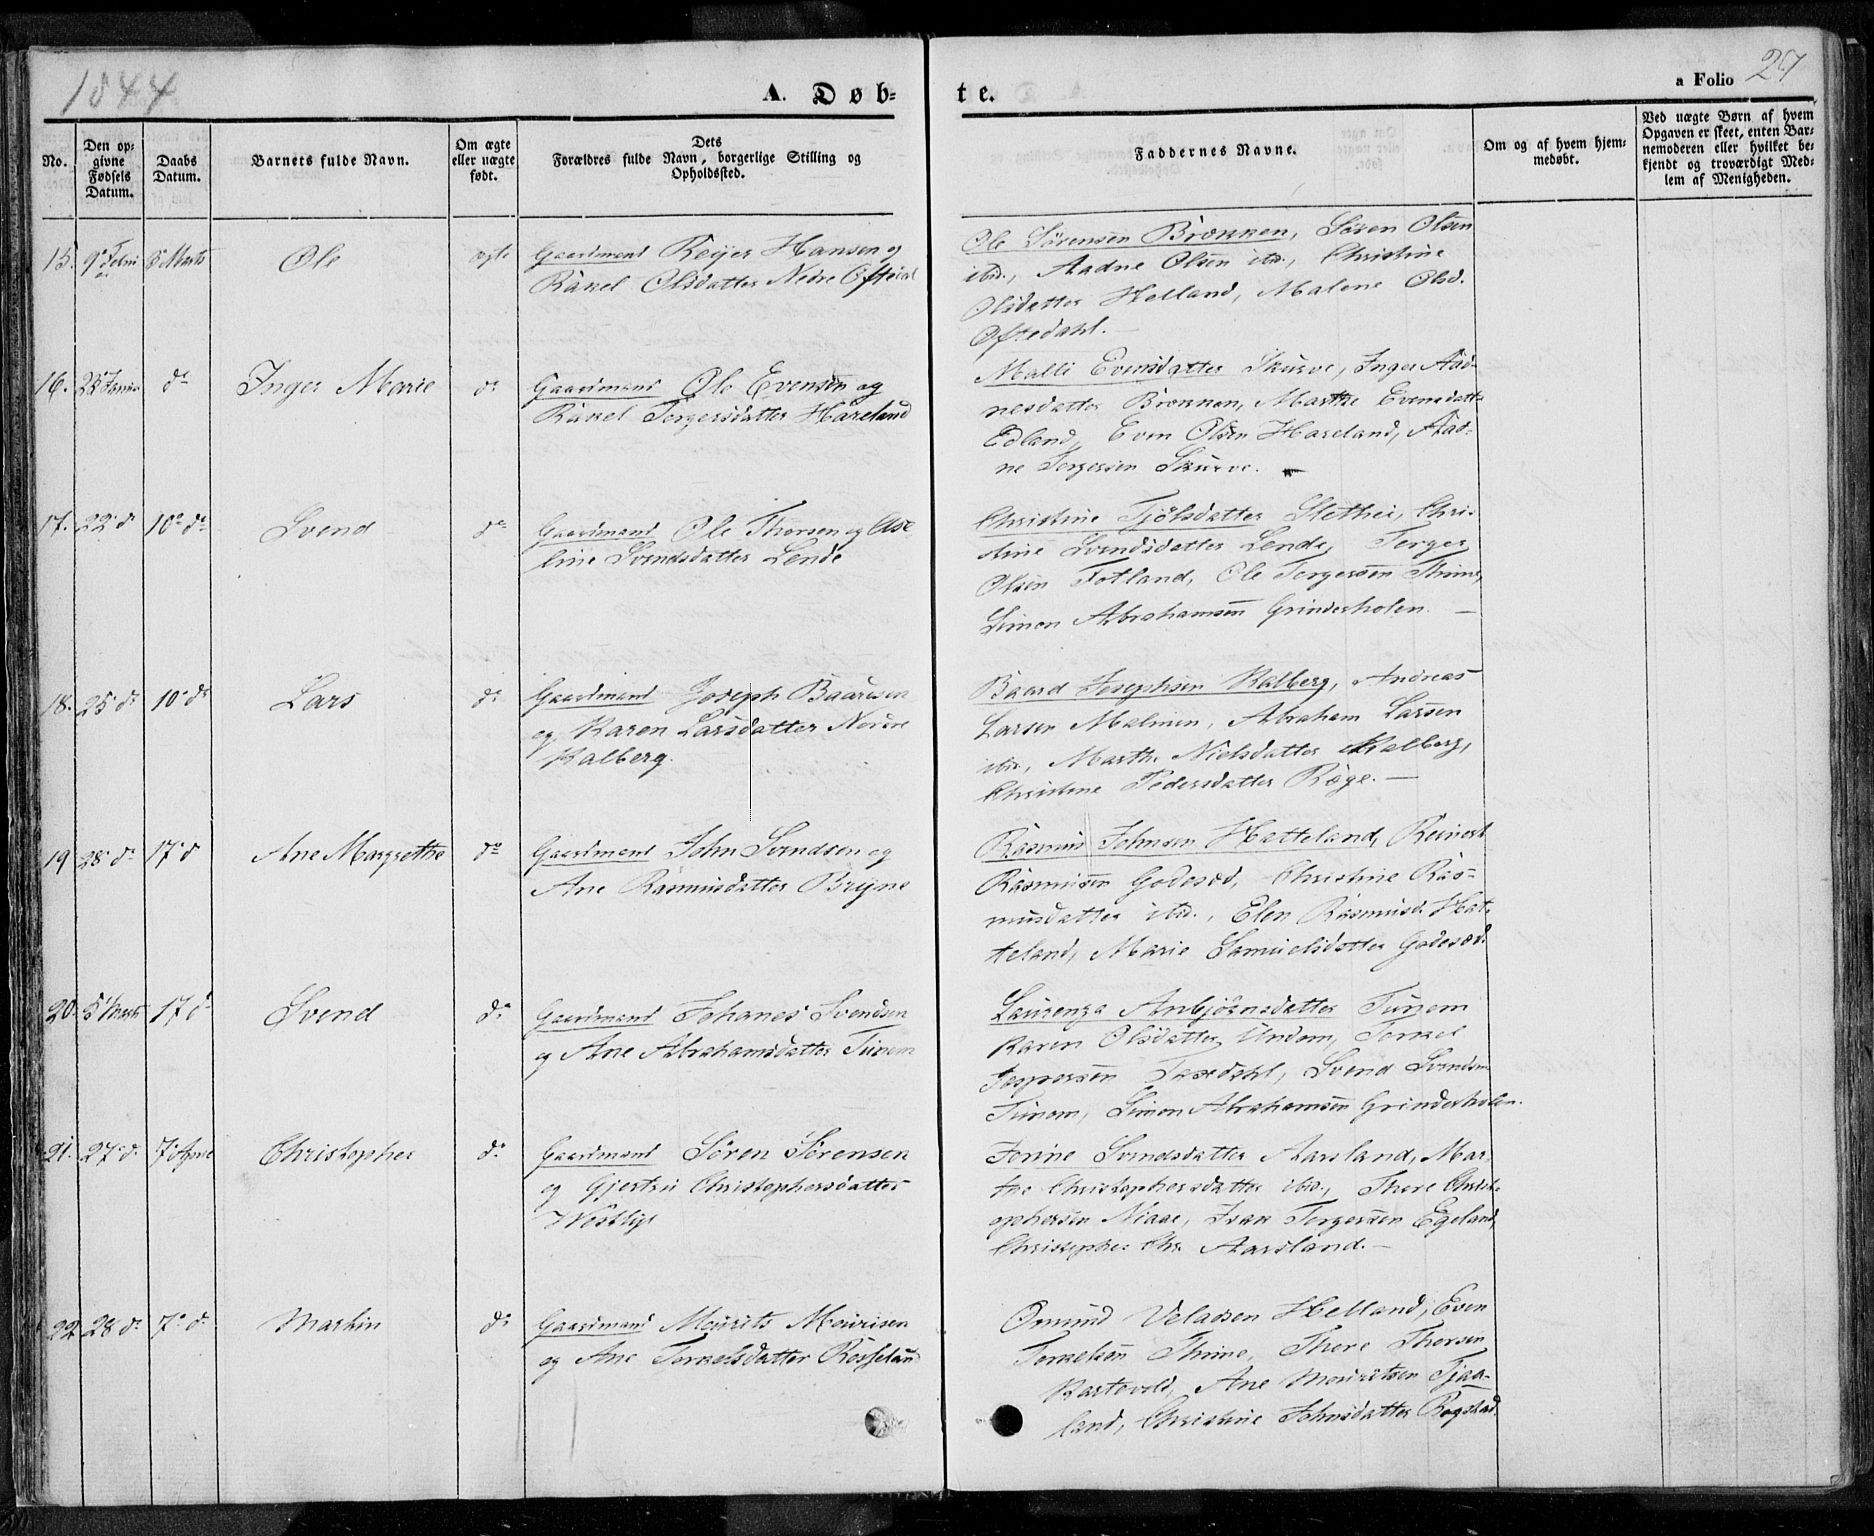 1844
A. Døb-
te.
a Folio 27
No.
Den op-
givne
Fødsels
Datum.
Daabs
Datum.
Barnets fulde Navn.
Om ægte
eller uægte
født.
Dets
Forældres fulde Navn, borgerlige Stilling og
Opholdssted.
Faddernes Navne.
Om og af hvem hjem-
medøbt.
Ved uægte Børn af hvem
Opgaven er skeet, enten Bar-
nemoderen eller hvilket be-
kjendt og troværdigt Med-
lem af Menigheden.
15. 9de Febru 3 Marts Ole ægte Gaardmand Reijer Hansen og
Rakel Olsdatter Nedre Oftedal
Ole Sørensen Brønnen, Søren Olsen
ibd., Aadne Olsen ibd., Christine
Olsdatter Helland, Malene Olsd.
Oftedahl.—
16. do Inger Marie do Gaardmand Ole Evensen og
Rakel Tergersdatter Hareland
Malli Evensdatter Skurve, Inger Aad-
nesdatter Brønnen, Marthe Evensdatt.
Edland, Even Olsen Hareland, Aad-
ne Tergersen Skurve.
17. 22 d 10de do Svend do Gaardmand Ole Thorsen og Ase
line Svendsdatter Lende
Christine Tjølsdatter Slethei, Chri-
stine Svendsdatter Lende, Terger
Olsen Fotland, Ole Tergersen Thime,
Simon Abrahamsen Grinderholen.—
18. 25 do 10 do Lars do Gaardmand Joseph Baardsen
og Karen Larsdatter Nordre
Kalberg.
Baard Josephsen Kalberg, Andreas
Larsen Malmen, Abraham Larsen
ibd., Marth. Nielsdatter Kalberg,
Christine Pedersdatter Røge.—
19 28 do 17 d Ane Margrethe do Gaardmand John Svendsen og
Ane Rasmusdatter Bryne
Rasmus Johnsen Hatteland, Reinert
Rasmusen Godesed, Christine Ras-
musdatter ibd., Elen Rasmusd. Hat-
teland, Marie Samuelsdatter Godesed.
20. 5 Marts 17 d Svend do Gaardmand Johanes Svendsen
og Ane Abrahamsdatter Tunem
Laurenza Anbjørnsdatter Tunem
Karen Olsdatter Undem, Torkel
Jespersen Taxdahl, Svend Svendsen
Tunem, Simon Abrahamsen Grinderholen.
21. 27 d. 7 April Christopher do Gaardmand Søren Sørensen
og Gjertru Christophersdatter
Westlye
Jorine Svendsdatter Aarsland, Mar-
the Christophersdatter ibd., Thore Christ-
ophersen Niaae, Isak Tergersen Egeland,
Christopher Chr. Aarsland.—
22 28 do 7 d. Martin do Gaardmand Mourits Mouritsen
og Ane Torkelsdatter Rosseland
Omund Veladsen Helland, Even
Torkelsen Thime, Thore Thorsen
Kartevold, Ane Mouritsen Tjaa-
land, Christine Johnsdatter Rogstad.